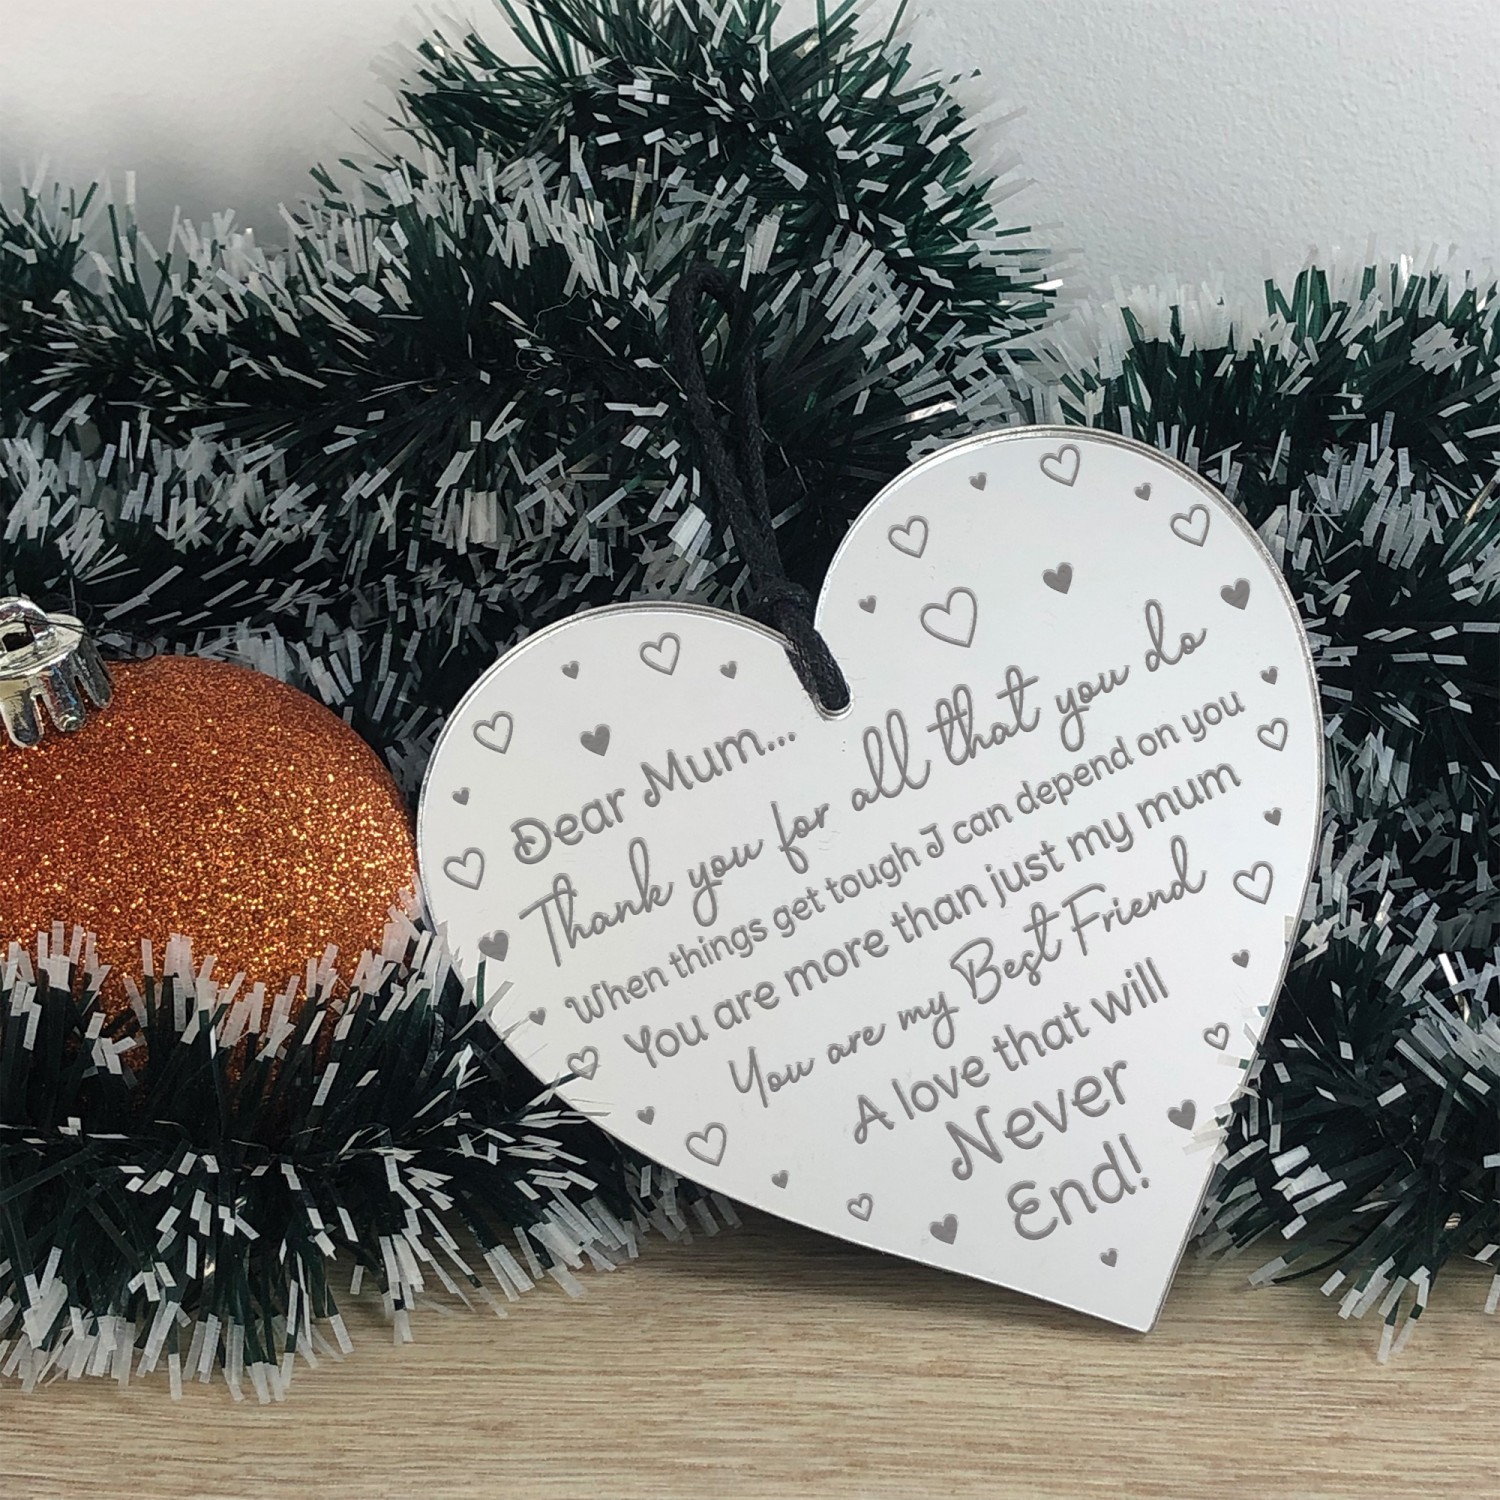 Dear Mum...
Thank you for all that you do
When things get tough I can depend on you
You are more than just my mum
You are my Best Friend
A love that will
Never
End!